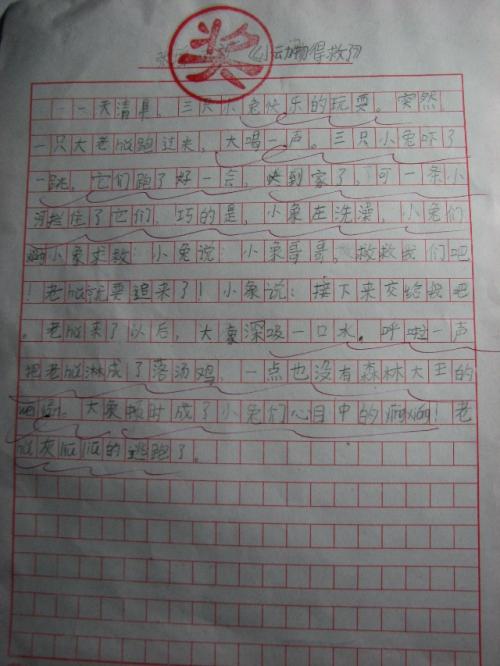 奖
《小动物得救了》
一一天清早,三只小兔快乐的玩耍。突然,
一只大老虎跑过来,大唱一声。三只小兔吓了
一跳,它们跑了好一会,快到家了,可一条小
河拦住了它们,巧的是,小象在洗澡,小兔们
向小象求救:小兔说:小象哥哥,救救我们吧
!老虎就要追来了!小象说:接下来交给我吧
。老虎来了以后,大象深吸一口水。呼啦一声
把老虎淋成了落汤鸡,一点也没有森林大王的
大象顿时成了小兔们心目中的!老
虎灰的逃跑了。